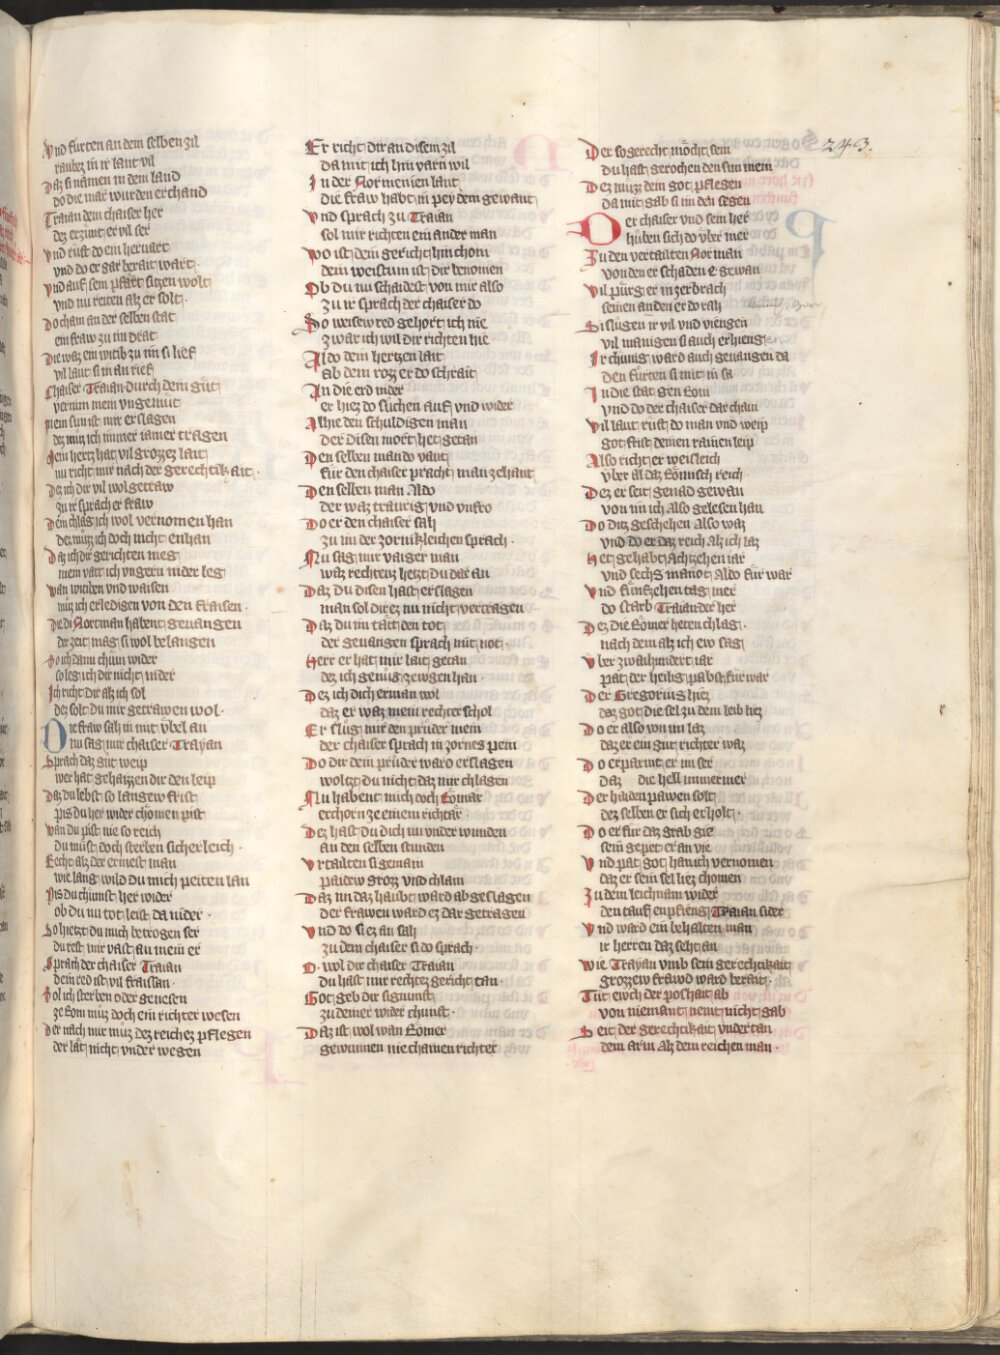 Vnd furten an dem selben zil
raubez in ir lant vil
Daz si namen in dem land
do die mar wurden erchand
Traian dem chaiser her
dez erzurnt er vil ser
Vnd rust do ein hervart
vnd do er gar berait wart
Vnd auf sein pfart sitzen wolt
vnd nu reiten alz er solt
Do cham an der selben stat
ein fraw zu im drat
Die waz ein witib zu im si lief
vil laut si in an rief
Chaiser Traian durch dein gut
vernim mein vngemut
Mein sun ist mir erslagen
dez muz ich immer iamer tragen
Mein hertz hat vil grozzez lait
nu richt mir nach der gerechtikait
Dez ich dir vil wol getraw
zu ir sprach er fraw
Dein chlag ich wol vernomen han
der muz ich doch nicht enhan
Daz ich dir gerichten meg
mein vart ich vngern nider leg
Wan witiben vnd waisen
muz ich erledigen von den fraisen
Die di Nortman habent gevangen
der zeit mag si wol belangen
So ich dann chum wider
so leg ich dir nicht nider
Ich richt dir alz ich sol
dez solt du mir getrawen wol
Die fraw sah in mit vbel an
nu sag mir chaiser Trayan
Sprach daz gut weip
wer hat gehaizzen dir den leip
Daz du lebst so langew frist
pis du her wider chomen pist
Wan du pist nie so reich
du must doch sterben sicherleich
Recht alz der ermest man
wie lang wild du mich peiten lan
Pis du chumst her wider
ob du nu tot leist da nider
So hietzt du mich betrogen ser
du rest mir vast an mein er
Sprach der chaiser Traian
dein red ist vil fraislan
Sol ich sterben oder genesen
ze Rom muz doch ein richter wesen
Der nach mir muz dez reichez pflegen
der lat nicht vnder wegen
Er richt dir an disem zil
da mit ich hin varn wil
In der Normenien lant
die fraw habt in pey dem gewant
Vnd sprach zu Traian
sol mir richten ein ander man
Wo ist dem gericht hin chom
dein weistum ist dir benomen
Ob du nu schaidest von mir also
zu ir sprach der chaiser do
So weisew red gehort ich nie
zwar ich wil dir richten hie
Aldo dem hertzen lait
ab dem rozz er do schrait
An die erd nider
er hiez do suchen auf vnd wider
Alhie den schuldigen man
der disen mort het getan
Den selben man do vant
für den chaiser pracht man zehant
Den selben man aldo
der waz traurig vnd vnfro
Do er den chaiser sah
zu im der zorniklichen sprach
Nu sag mir vaiger man
waz rechtenz hetzt du dar an
Daz du disen hast erslagen
man sol dir ez nu nicht vertragen
Daz du im tat den tot
der gevangen sprach mit not
Herr er hat mir lait getan
dez ich genug zewgen han
Dez ich dich erman wol
daz er waz mein rechter schol
Er slug mir den pruder mein
der chaiser sprach in zornes pein
Do dir dein pruder ward erslagen
woltzt du nicht daz mir chlagen
Nu habent mich doch Romar
erchorn ze einem richtar
Dez hast du dich nu vnder wunden
an den selben stunden
Vrtailten si gemain
paidew grozz vnd chlain
Daz im daz haubt ward abgeslagen
der frawen ward ez dar getragen
Vnd do si ez an sah
zu dem chaiser si do sprach
O wol dir chaiser Traian
du hast mir rechtez gericht tan
Got geb dir signunft
zu deiner wider chunft
Daz ist wol wan Romer
gewunnen nie chainen richter
Der so gerecht mocht sein
du hast gerochen den sun mein
Dez muz dem got pflegen
da mit gab si im den segen
Der chaiser vnd sein her
huben sich do vber mer
Zu den vertailten Norman
von den er schaden e gewan
Vil purg er in zerbrach
seinen anden er do rah
Si slugen ir vil vnd viengen
vil manigen si auch erhiengen
Ir chunig ward auch gevangen da
den furten si mit in sa
In die stat gen Rom
vnd do der chaiser dar cham
Vil laut ruft do man vnd weip
got frist deinen rainen leip
Also richt er weisleich
vber al daz Romisch reich
Dez er seit genad gewan
von im ich also gelesen han
Do ditz geschehen also waz
vnd do er daz reich alz ich laz
Het gehabt achtzehen iar
vnd sechs manot aldo für war
Vnd fünfzehen tag mer
do starb Traian der her
Dez die Romer heten chlag
nach dem alz ich ew sag
Vber zwaihundert iar
pat der heilig pabst für war
Der Gregorius hiez
daz got die sel zu dem leib liez
Do er also von im laz
daz er ein gut richter waz
Do erparmt er im ser
daz die hell immer mer
Der haiden pawen solt
dez selben er sich erholt
Do er für daz grab gie
sein gepet er an vie
Vnd pat got han ich vernomen
daz er sein sel liez chomen
Zu dem leichnam wider
den tauf enpfieng Traian sider
Vnd ward ein behalten man
ir herren daz seht an
Wie Trayan vmb sein gerechtikait
grozzew frawd ward berait
Tut ewch der poshait ab
von niemant nemt nicht gab
Seit der gerechtikait vndertan
dem arm alz dem reichen man
243.